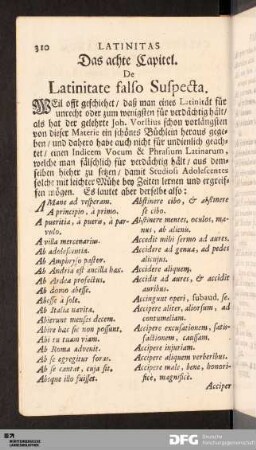 310 LATINITAS
Das achte Capitel.
De
Latinitate falso Suspecta.
WEil offt geschiehet/ daß man eines Latinität für
unrecht oder zum wenigsten für verdächtig hält/
als hat der gelehrte Joh. Vorstius schon vorlängsten
von dieser Materie ein schönes Büchlein heraus gege-
ben/ und dahero habe auch nicht für undienlich geach-
tet/ einen Indicem Vocum & Phrasium Latinarum,
welche man fälschlich für verdächtig hält/ aus dem-
selben hieher zu setzen/ damit Studiosi Adolescentes
solche mit leichter Mühe bey Zeiten lernen und ergreif-
fen mögen. Es lautet aber derselbe also:
A Mane ad vesperam.
A principio, à primo.
A pueritia, à puero, à par-
vulo.
A villa mercenarius.
Ab adolescentia.
Ab Amphryso pastor.
Ab Andria est ancilla hæc.
Ab Ardea profectus.
Ab domo abesse.
Abesse à sole.
Ab Italia navita.
Abierunt menses decem.
Abire hæc sic non possunt.
Abi tu tuam viam.
Ab Roma advenit.
Ab se egregitur foras.
Ab se cantat, cuja sit.
Absque illo fuisset.
Abstinere cibo, & abstinere
se cibo.
Abstinere mentes, oculos, ma-
nus, ab alienis.
Accedit mihi sermo ad aures.
Accidere ad genua, ad pedes
alicujus.
Accidere aliquem.
Accidit ad aures, & accidit
auribus.
Accingunt operi, subaud. se.
Accipere aliter, aliorsum, ad
contumeliam.
Accipere excusationem, satis-
factionem, causam.
Accipere injuriam.
Accipere aliquem verberibus.
Accipere male, bene, honori-
ficè, magnificè.
Acciper
DFG Deutsche Forschungsgemeinschaft